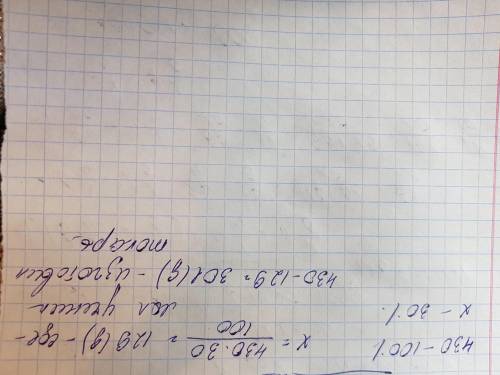 430 - 100%
x - 30%
x = 430·30/100 = 129 (д) - сде-
лал ученик
430-129=301(д) - изготовил
токарь.